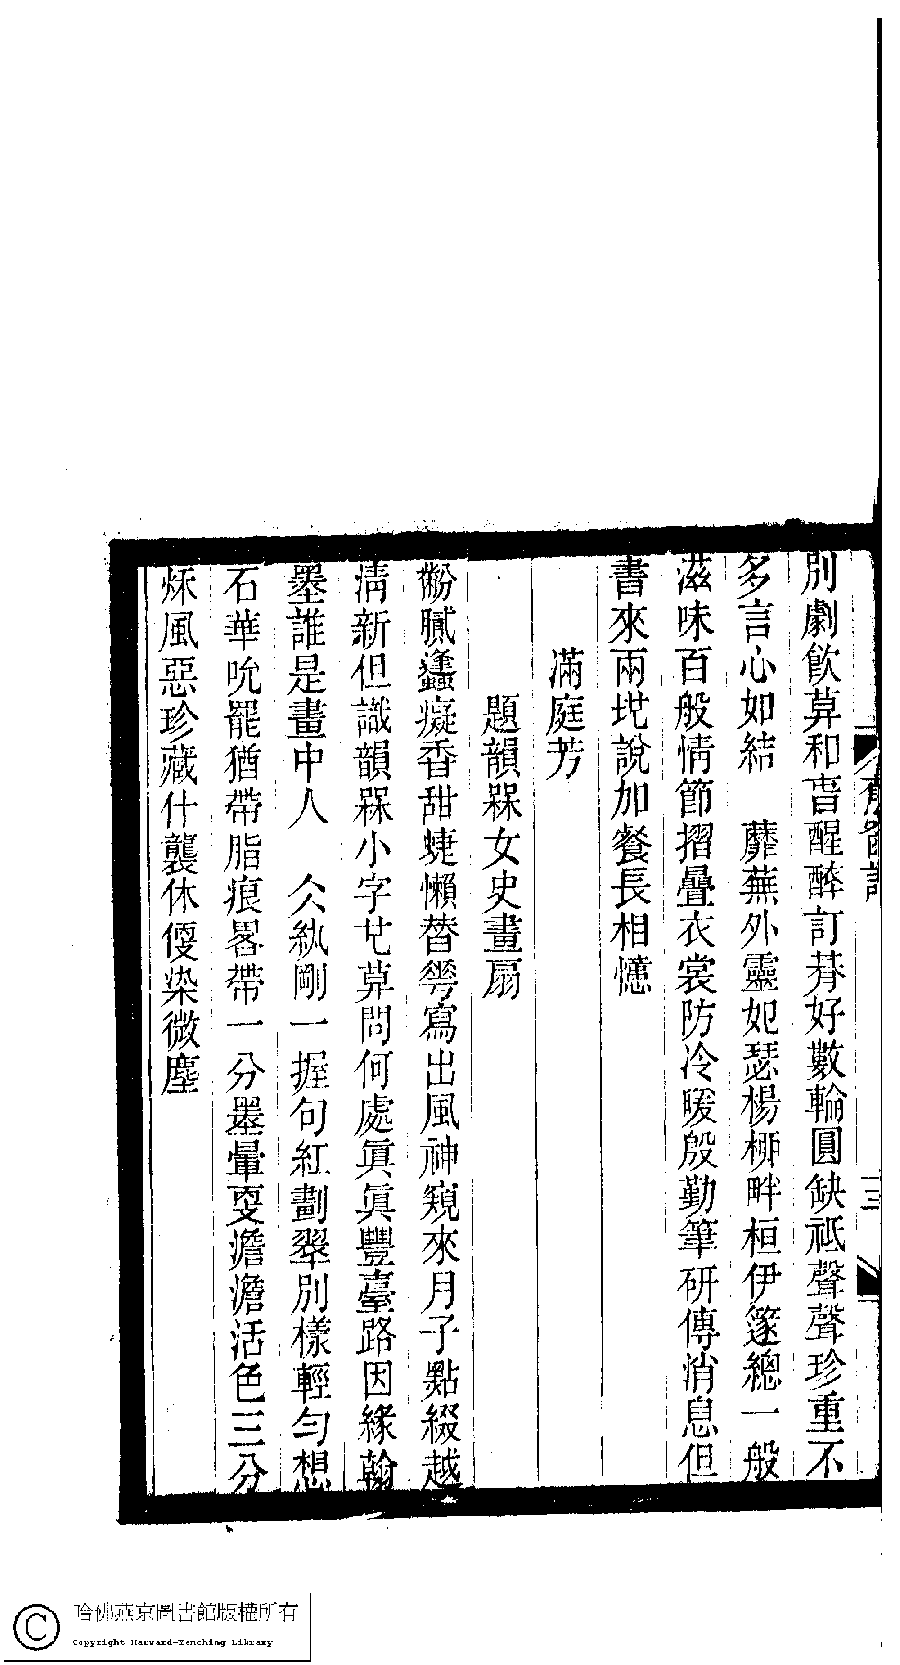 別劇飲算和音醒醉訂幇好數輪圓缺祗聲聲珍重不
多言心如結　蘼蕪外靈妃瑟楊柳畔桓伊篴總一般
滋味百般情節摺疊衣裳防冷暖殷勤筆研傳消息但
書來兩地說加餐長相憶
滿庭芳
題韻槑女史畫扇
黺膩蠭癡香甜蜨懶替花寫出風神窺來月子點綴越
淸新但識韻槑小字廿草問何處眞眞豐臺路因緣翰
墨誰是畫中人　久紈剛一握句紅劃翠別樣輕勻想
石華吮罷猶帶脂痕畧帶一分墨暈耍澹澹活色三分
秌風惡珍藏什襲休偄染微塵
三
哈佛燕京圖書館版權所有
Copyright Harvard-Yenching Library